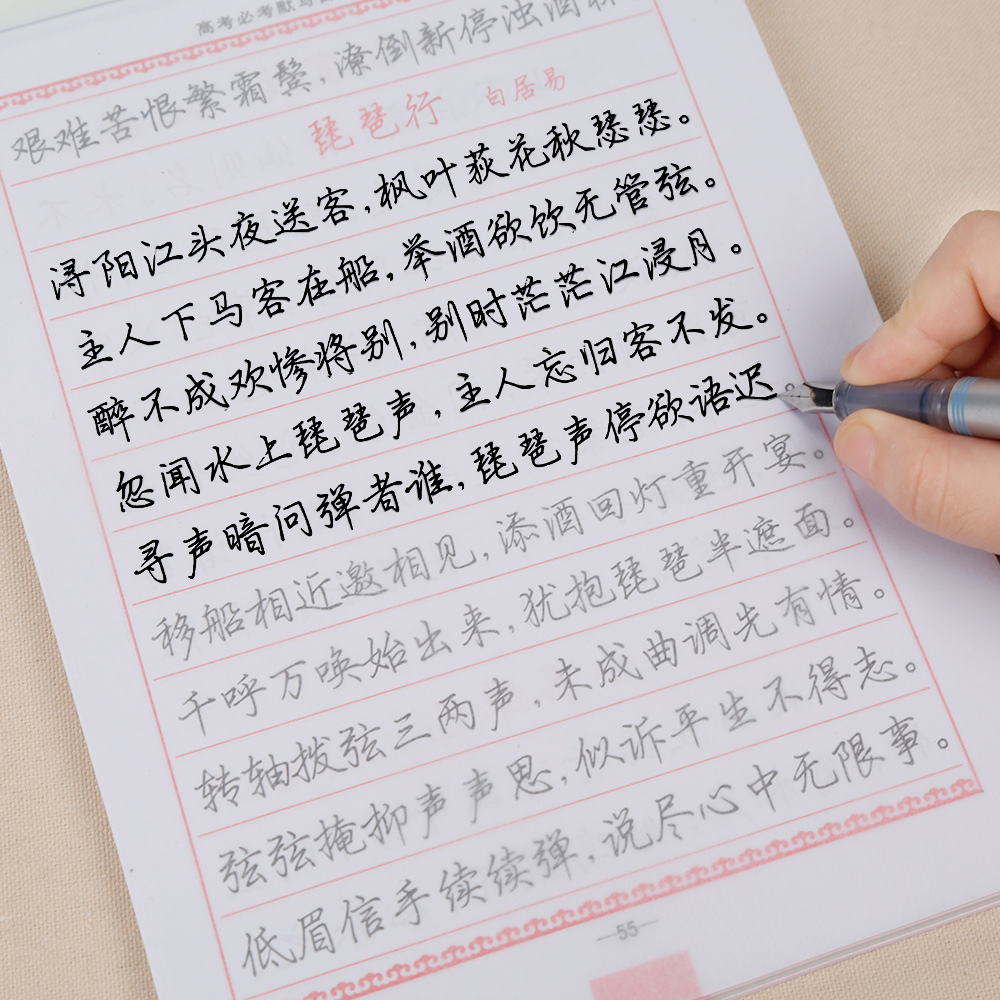 高考必考默写
艰难苦恨繁霜鬓，潦倒新停浊酒杯
琵琶行 白居易
浔阳江头夜送客，枫叶荻花秋瑟瑟。
主人下马客在船，举酒欲饮无管弦。
醉不成欢惨将别，别时茫茫江浸月。
忽闻水上琵琶声，主人忘归客不发。
寻声暗问弹者谁，琵琶声停欲语迟。
移船相近邀相见，添酒回灯重开宴。
千呼万唤始出来，犹抱琵琶半遮面。
转轴拨弦三两声，未成曲调先有情。
弦弦掩抑声声思，似诉平生不得志。
低眉信手续续弹，说尽心中无限事。
—55—